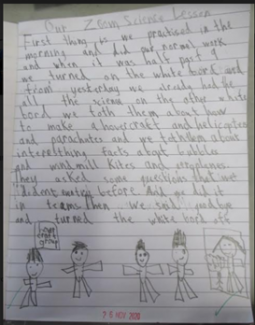 Our Zoom Science Lesson
First thing is we practised in the
morning and did our normal work
and when it was half past 9
we turned on the white bord and
from yesterday we already had
all the science on the other white
bord we toth them about how
to make a hovercraft and helicopter
and parachutes and we toth them about
interesting facts about bubbles
and windmill kites and aroplanes
they asked some questions that we
dident notice before And we did it
in teams then we said goodbye
and turned the white bord off
26 NOV 2020